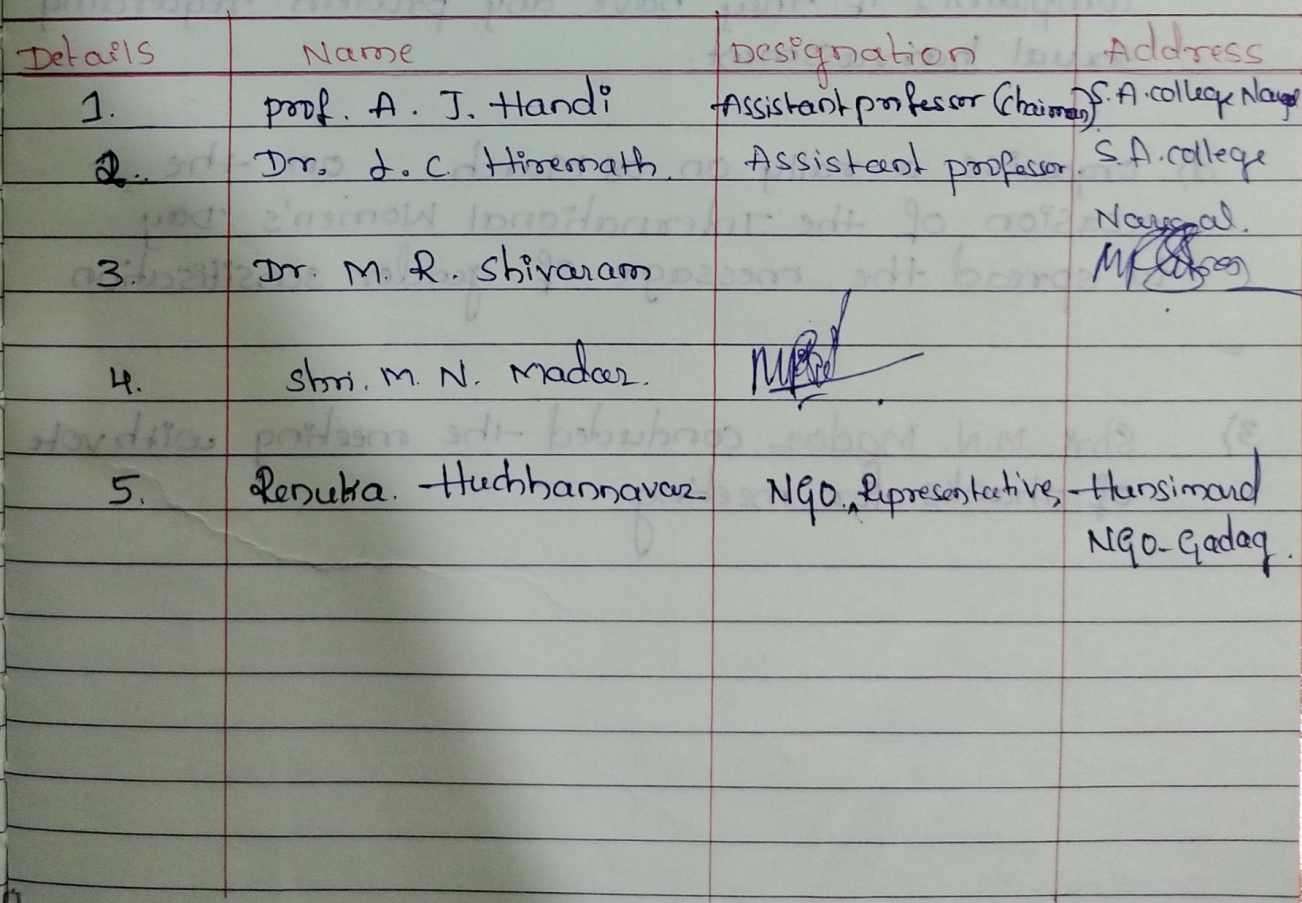 Details Name Designation Address
1. prof. A. J. Handi Assistant professor (Chairman) S. A. college
2. Dr. I. C. Hiremath. Assistant professor. S.A. college
Naregal.
3. Dr. M. R. Shivaram
4. Shri. M. N. Madar.
5. Renuka. Huchhannavar NGO. Representative, Hunsimard
NGO-Gadag.